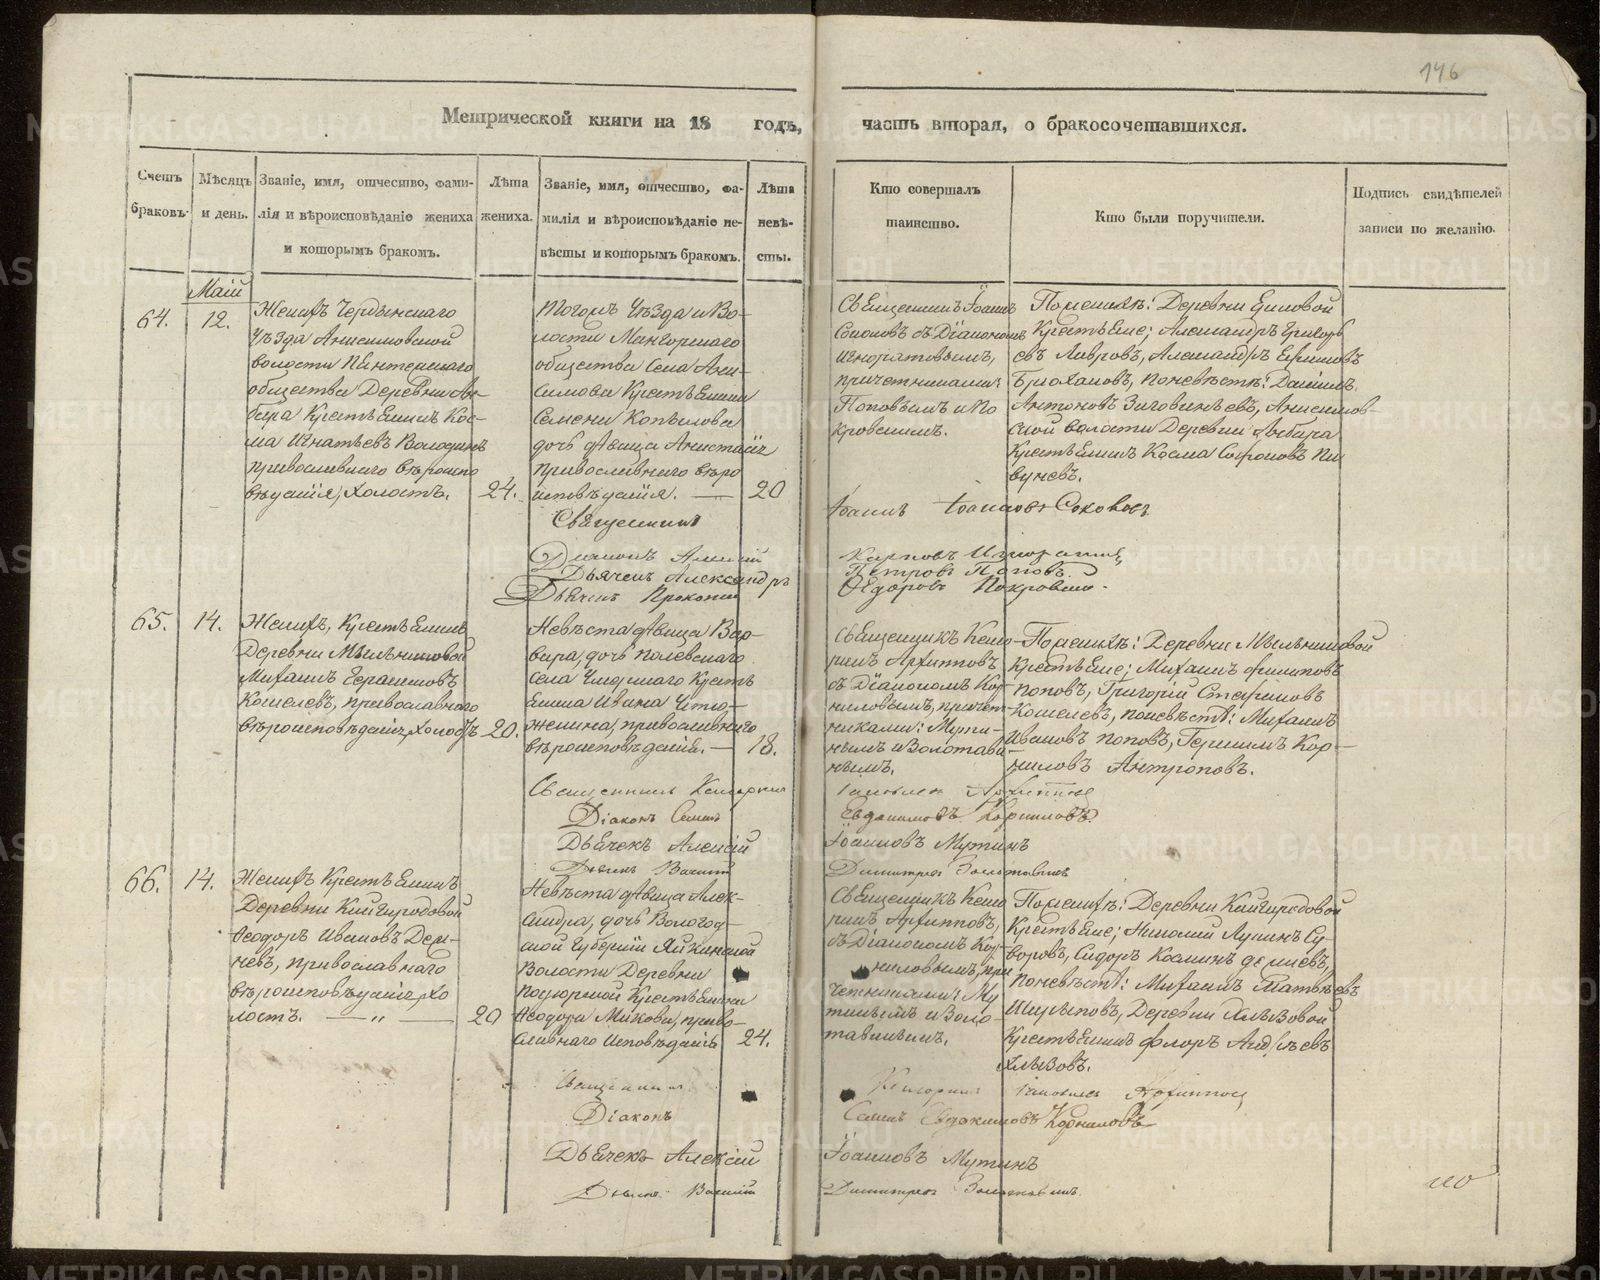 146
Метрической книги на 18 годъ, часть вторая, о бракосочетавшихся.
Счетъ браковъ.
Мѣсяцъ и день.
Званіе, имя, отчество, фами-
лія и вѣроисповѣданіе жениха
и которымъ бракомъ.
Лѣта
жениха.
Званіе, имя, отчество, фа-
милія и вѣроисповѣданіе не-
вѣсты и которымъ бракомъ.
Лѣта
невѣ-
сты.
Кто совершалъ
таинство.
Кто были поручители.
Подпись свидѣтелей
записи по желанію.
Маій
64.
12.
Женихъ Чердынскаго
Уѣзда Анисимовской
волости Пянтежскаго
общества Деревни
Крестьянинъ Кос-
ма Игнатьевъ Володинъ
православнаго вѣроиспо
вѣданія, холостъ.
24.
Тогожъ Уѣзда и Во-
лости
общества Села Ани-
симова Крестьянина
Семена Копылова
дочь дѣвица Анастасія
православнаго вѣро
исповѣданія.
20
Священникъ Іоаннъ
Соколовъ съ Діакономъ
Игнатовымъ,
причетниками:
Поповымъ и По
кровскимъ.
По женихѣ: Деревни
Крестьяне; Александръ Григорь
евъ Лавровъ, Александръ Ефимовъ
Брюхановъ, по невѣстѣ: Даніилъ
Антоновъ Анисимов-
ской волости Деревни
Крестьянинъ Косма Софроновъ Пи
вуневъ.
Священникъ
Іоаннъ Іоанновъ Соколовъ
Діаконъ Алексій
Карповъ
Дьячекъ Александръ
Петровъ Поповъ
Дьячекъ Прокопій
Ѳедоровъ Покровскій.
65.
14.
Женихъ, Крестьянинъ
Деревни Мыльниковой
Михаилъ Герасимовъ
Кошелевъ, православнаго
вѣроисповѣданія, холостъ
20.
Невѣста дѣвица Вар-
вара, дочь Полевскаго
Села Крестъ
янина Ивана
православнаго
вѣроисповѣданія.
18.
Священникъ Кенso-
Архипповъ
съ Діакономъ Кор-
ниловымъ, причет-
никами: Мути-
нымъ и Золотави-
нымъ.
По женихѣ: Деревни Мыльниковой
Крестьяне; Михаилъ Филиповъ
Поповъ, Григорій Стефановъ
Кошелевъ, по невѣстѣ: Михаилъ
Ивановъ Поповъ, Герасимъ Кор-
ниловъ Антроповъ.
Священникъ
Діаконъ Семенъ
Евдокимовъ Корниловъ
Дьячекъ Алексій
Іоанновъ Мутинъ
Дьячекъ Василій
Димитріевъ Золотавинъ
66.
14.
Женихъ Крестьянинъ
Деревни Кайгородовой
Ѳеодоръ Ивановъ Дем-
невъ, православнаго
вѣроисповѣданія, хо
лостъ. — „ —
20
Невѣста дѣвица Алек-
сандра, дочь Вологод-
ской Губерніи
Волости Деревни
Крестьянина
Ѳеодора право-
славнаго исповѣданія
24.
Священникъ
Архипповъ,
съ Діакономъ Кор-
ниловымъ, при
четниками: Му
тинымъ и Золо-
тавинымъ.
По женихѣ: Деревни Кайгородовой
Крестьяне; Николай Лупинъ Су-
воровъ, Сидоръ Косминъ
по невѣстѣ: Михаилъ Матвѣевъ
Деревни Хлызовой
Крестьянинъ Флоръ Андреевъ
Хлызовъ.
Священникъ
Архипповъ
Діаконъ
Семенъ Евдокимовъ Корниловъ
Дьячекъ Алексій
Іоанновъ Мутинъ
Дьячекъ Василій
Димитріевъ Золотавинъ
METRIKI.GASO-URAL.RU